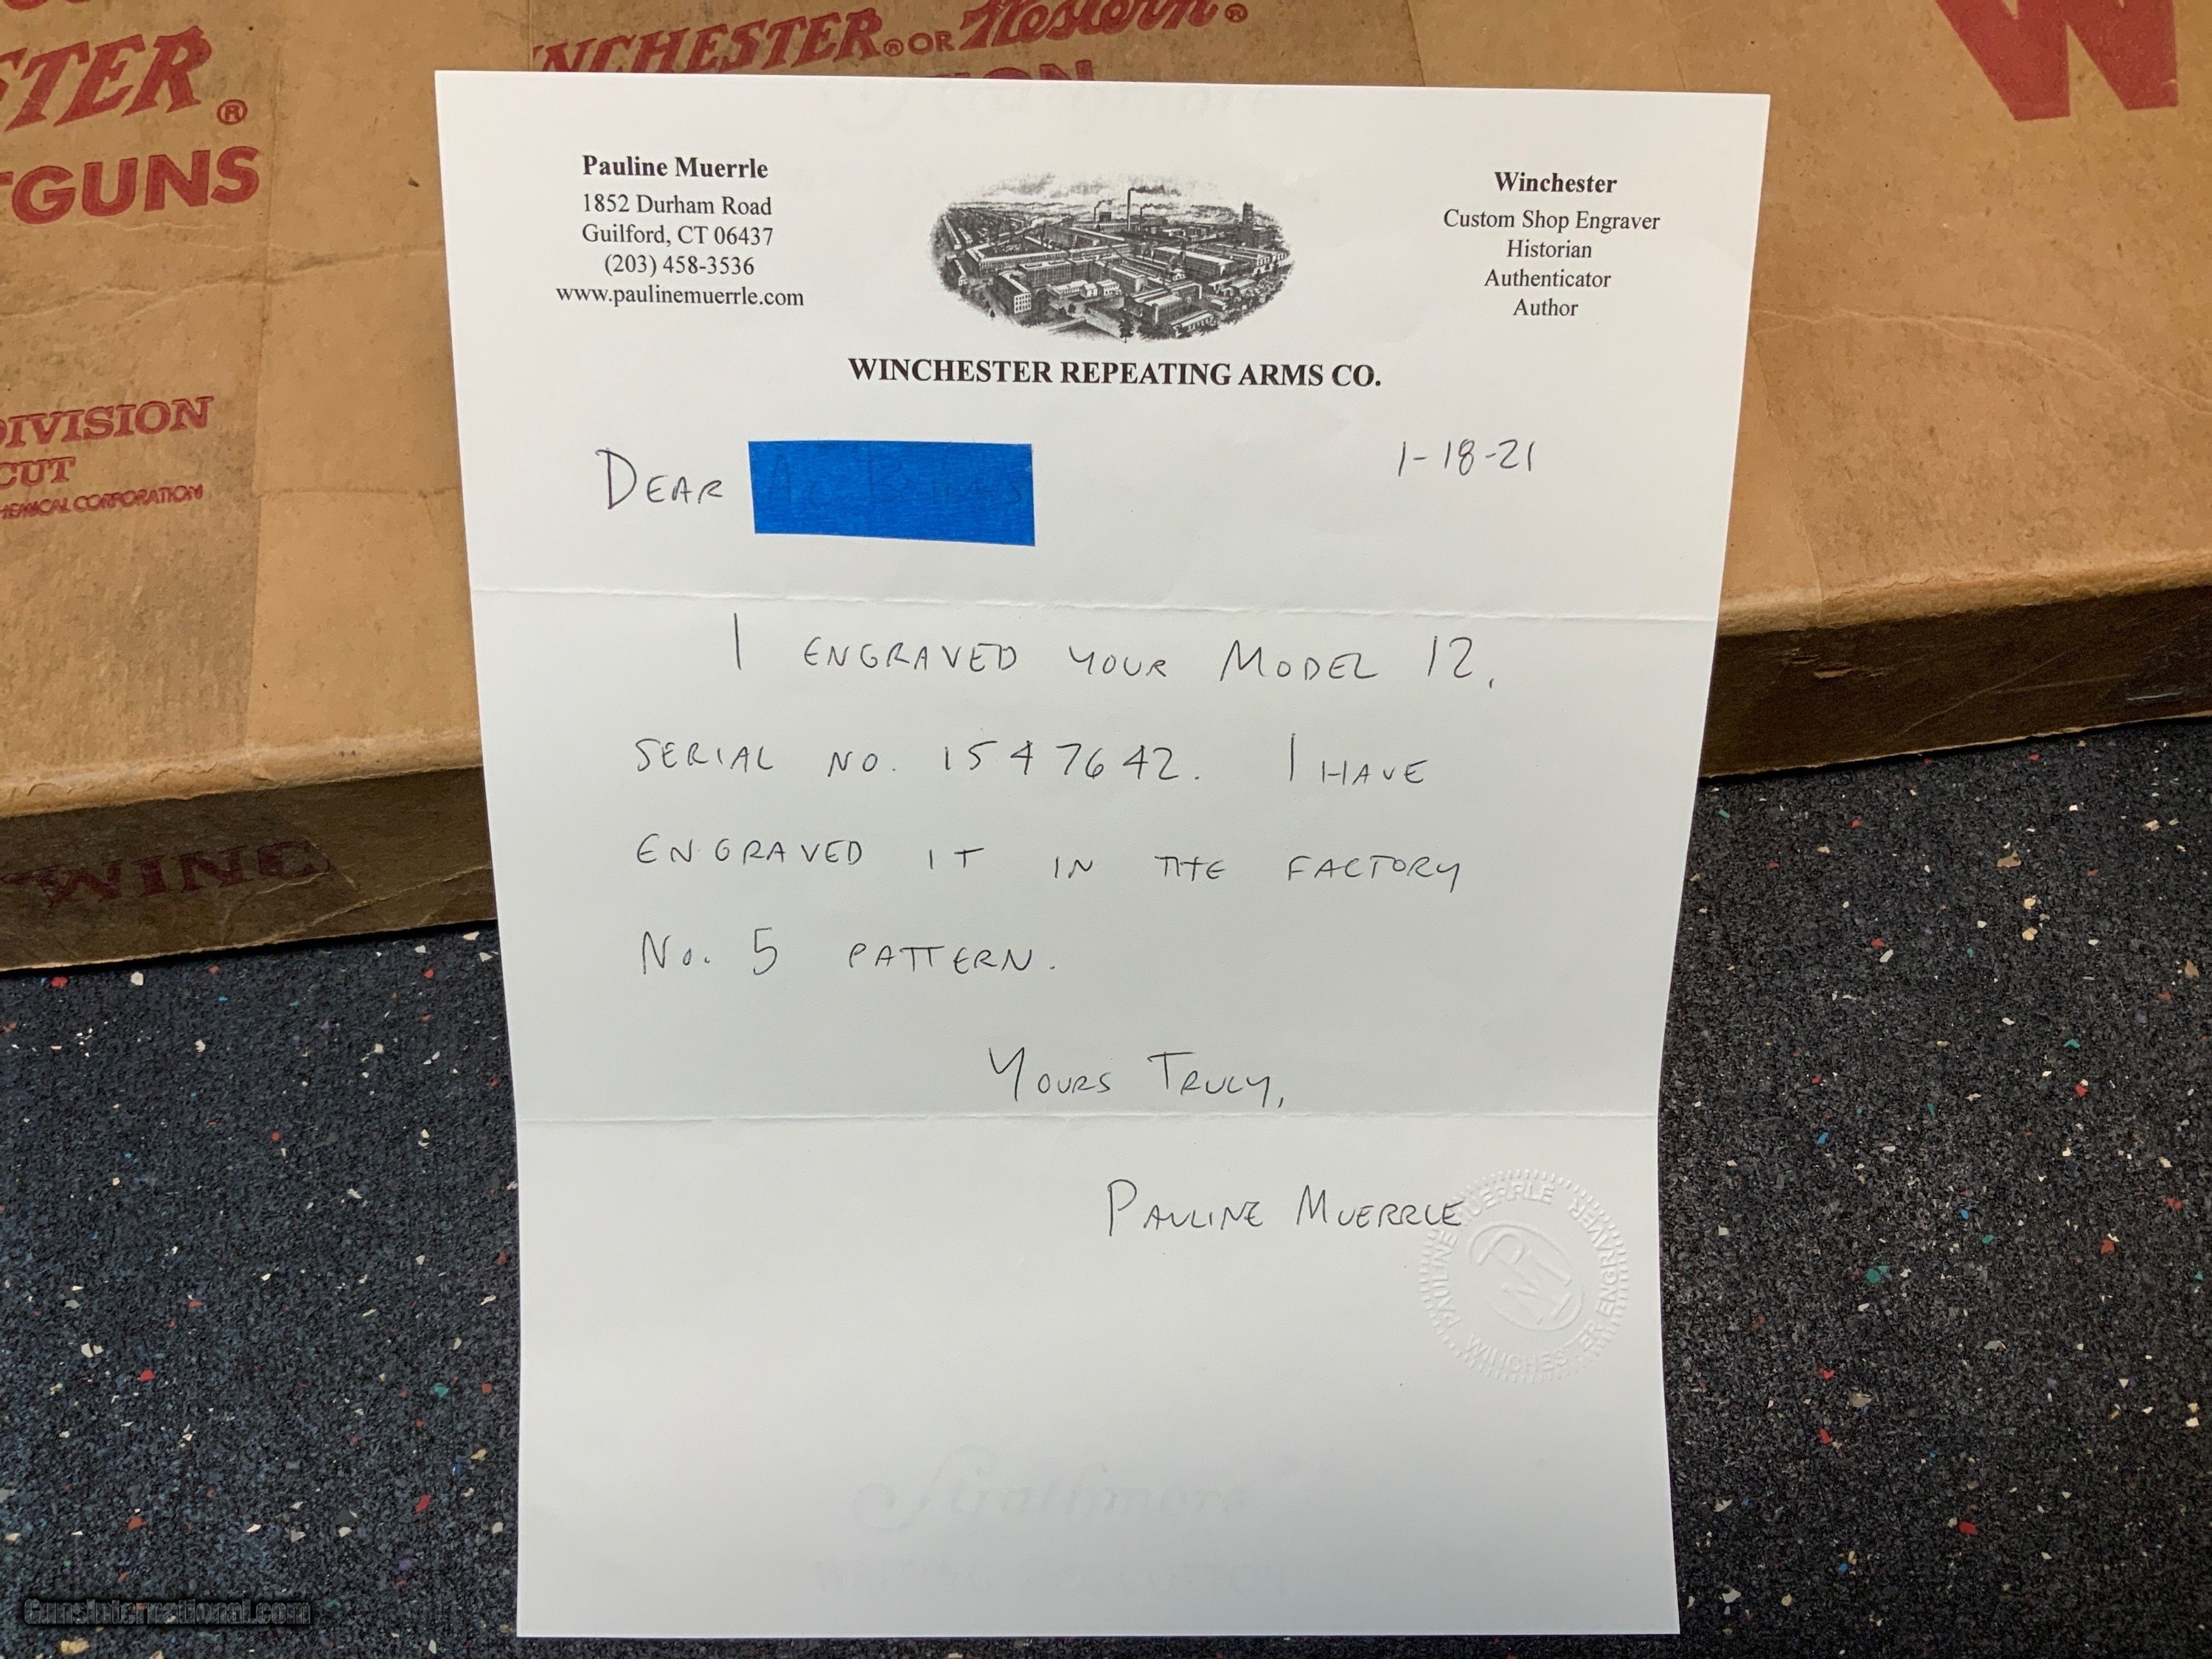 STER®
TGUNS
DIVISION
CUT
CHEMICAL CORPORATION
WINCHESTER® OR Western®
W
WINC
Pauline Muerrle
1852 Durham Road
Guilford, CT 06437
(203) 458-3536
www.paulinemuerrle.com
Winchester
Custom Shop Engraver
Historian
Authenticator
Author
WINCHESTER REPEATING ARMS CO.
1-18-21
DEAR
I ENGRAVED YOUR MODEL 12,
SERIAL NO. 1547642. I HAVE
ENGRAVED IT IN THE FACTORY
NO. 5 PATTERN.
YOURS TRULY,
PAULINE MUERRLE
PAULINE MUERRLE ENGRAVER
WINCHESTER
PM
Strathmore
GunsInternational.com